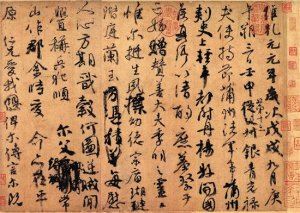 維乾元元年歲次戊戌九月庚
午朔三日壬申第十三叔銀青光祿
夫使持節蒲州諸軍事蒲州
刺史上輕車都尉丹楊縣開國
侯真卿以清酌庶羞祭于
亡姪贈贊善大夫季明之靈曰
惟爾挺生夙標幼德宗廟瑚璉
階庭蘭玉每慰
人心方期戩穀何圖逆賊閒
釁稱兵犯順
爾父竭誠常
山作郡余時受命亦在平
原仁兄愛我俾爾傳言爾既